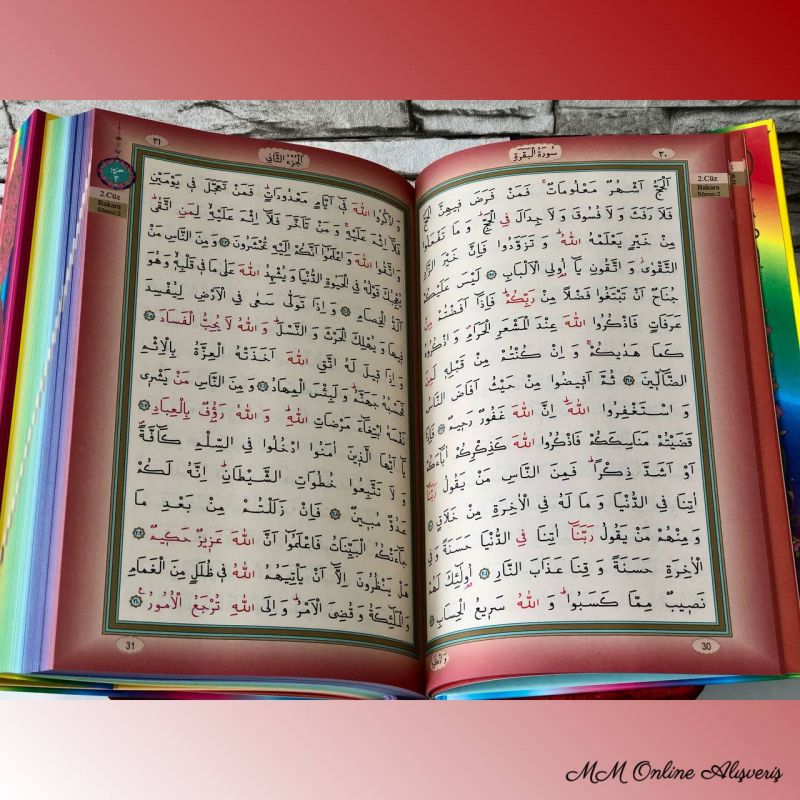 ٣٠
سُورَةُ الْبَقَرَةِ
2.Cüz
Bakara
Sûresi:2
اَلْحَجُّ اَشْهُرٌ مَعْلُومَاتٌۚ فَمَنْ فَرَضَ فٖيهِنَّ الْحَجَّ
فَلَا رَفَثَ وَلَا فُسُوقَ وَلَا جِدَالَ فِي الْحَجِّؕ وَمَا تَفْعَلُوا
مِنْ خَيْرٍ يَعْلَمْهُ اللّٰهُؕ وَتَزَوَّدُوا فَاِنَّ خَيْرَ الزَّادِ
التَّقْوٰىؗ وَاتَّقُونِ يَٓا اُولِي الْاَلْبَابِ ﴿١٩٧﴾ لَيْسَ عَلَيْكُمْ
جُنَاحٌ اَنْ تَبْتَغُوا فَضْلًا مِنْ رَبِّكُمْؕ فَاِذَٓا اَفَضْتُمْ مِنْ
عَرَفَاتٍ فَاذْكُرُوا اللّٰهَ عِنْدَ الْمَشْعَرِ الْحَرَامِࣕ وَاذْكُرُوهُ
كَمَا هَدٰيكُمْۚ وَاِنْ كُنْتُمْ مِنْ قَبْلِهٖ لَمِنَ
الضَّٓالّٖينَ ﴿١٩٨﴾ ثُمَّ اَفٖيضُوا مِنْ حَيْثُ اَفَاضَ النَّاسُ
وَاسْتَغْفِرُوا اللّٰهَؕ اِنَّ اللّٰهَ غَفُورٌ رَحٖيمٌ ﴿١٩٩﴾ فَاِذَا
قَضَيْتُمْ مَنَاسِكَكُمْ فَاذْكُرُوا اللّٰهَ كَذِكْرِكُمْ اٰبَٓاءَكُمْ
اَوْ اَشَدَّ ذِكْرًاؕ فَمِنَ النَّاسِ مَنْ يَقُولُ رَبَّنَٓا
اٰتِنَا فِي الدُّنْيَا وَمَا لَهُ فِي الْاٰخِرَةِ مِنْ خَلَاقٍ ﴿٢٠٠﴾
وَمِنْهُمْ مَنْ يَقُولُ رَبَّنَٓا اٰتِنَا فِي الدُّنْيَا حَسَنَةً وَفِي
الْاٰخِرَةِ حَسَنَةً وَقِنَا عَذَابَ النَّارِ ﴿٢٠١﴾ اُولٰٓئِكَ لَهُمْ
نَصٖيبٌ مِمَّا كَسَبُواؕ وَاللّٰهُ سَرٖيعُ الْحِسَابِ ﴿٢٠٢﴾
30
٣١
اَلْجُزْءُ الثَّانٖي
2.Cüz
Bakara
Sûresi:2
وَاذْكُرُوا اللّٰهَ فٖٓي اَيَّامٍ مَعْدُودَاتٍؕ فَمَنْ تَعَجَّلَ فٖي يَوْمَيْنِ
فَلَٓا اِثْمَ عَلَيْهِۚ وَمَنْ تَاَخَّرَ فَلَٓا اِثْمَ عَلَيْهِۙ لِمَنِ اتَّقٰىؕ
وَاتَّقُوا اللّٰهَ وَاعْلَمُٓوا اَنَّكُمْ اِلَيْهِ تُحْشَرُونَ ﴿٢٠٣﴾ وَمِنَ النَّاسِ مَنْ
يُعْجِبُكَ قَوْلُهُ فِي الْحَيٰوةِ الدُّنْيَا وَيُشْهِدُ اللّٰهَ عَلٰى مَا فٖي قَلْبِهٖۙ وَهُوَ
اَلَدُّ الْخِصَامِ ﴿٢٠٤﴾ وَاِذَا تَوَلّٰى سَعٰى فِي الْاَرْضِ لِيُفْسِدَ
فٖيهَا وَيُهْلِكَ الْحَرْثَ وَالنَّسْلَؕ وَاللّٰهُ لَا يُحِبُّ الْفَسَادَ ﴿٢٠٥﴾
وَاِذَا قٖيلَ لَهُ اتَّقِ اللّٰهَ اَخَذَتْهُ الْعِزَّةُ بِالْاِثْمِ
فَحَسْبُهُ جَهَنَّمُؕ وَلَبِئْسَ الْمِهَادُ ﴿٢٠٦﴾ وَمِنَ النَّاسِ مَنْ يَشْرٖي
نَفْسَهُ ابْتِغَٓاءَ مَرْضَاتِ اللّٰهِؕ وَاللّٰهُ رَؤُ۫فٌ بِالْعِبَادِ ﴿٢٠٧﴾
يَٓا اَيُّهَا الَّذٖينَ اٰمَنُوا ادْخُلُوا فِي السِّلْمِ كَٓافَّةًࣕ
وَلَا تَتَّبِعُوا خُطُوَاتِ الشَّيْطَانِؕ اِنَّهُ لَكُمْ
عَدُوٌّ مُبٖينٌ ﴿٢٠٨﴾ فَاِنْ زَلَلْتُمْ مِنْ بَعْدِ مَا
جَٓاءَتْكُمُ الْبَيِّنَاتُ فَاعْلَمُٓوا اَنَّ اللّٰهَ عَزٖيزٌ حَكٖيمٌ ﴿٢٠٩﴾
هَلْ يَنْظُرُونَ اِلَّٓا اَنْ يَاْتِيَهُمُ اللّٰهُ فٖي ظُلَلٍ مِنَ الْغَمَامِ
وَالْمَلٰٓئِكَةُ وَقُضِيَ الْاَمْرُؕ وَاِلَى اللّٰهِ تُرْجَعُ الْاُمُورُ ﴿٢١٠﴾
31
MM Online Alışveriş